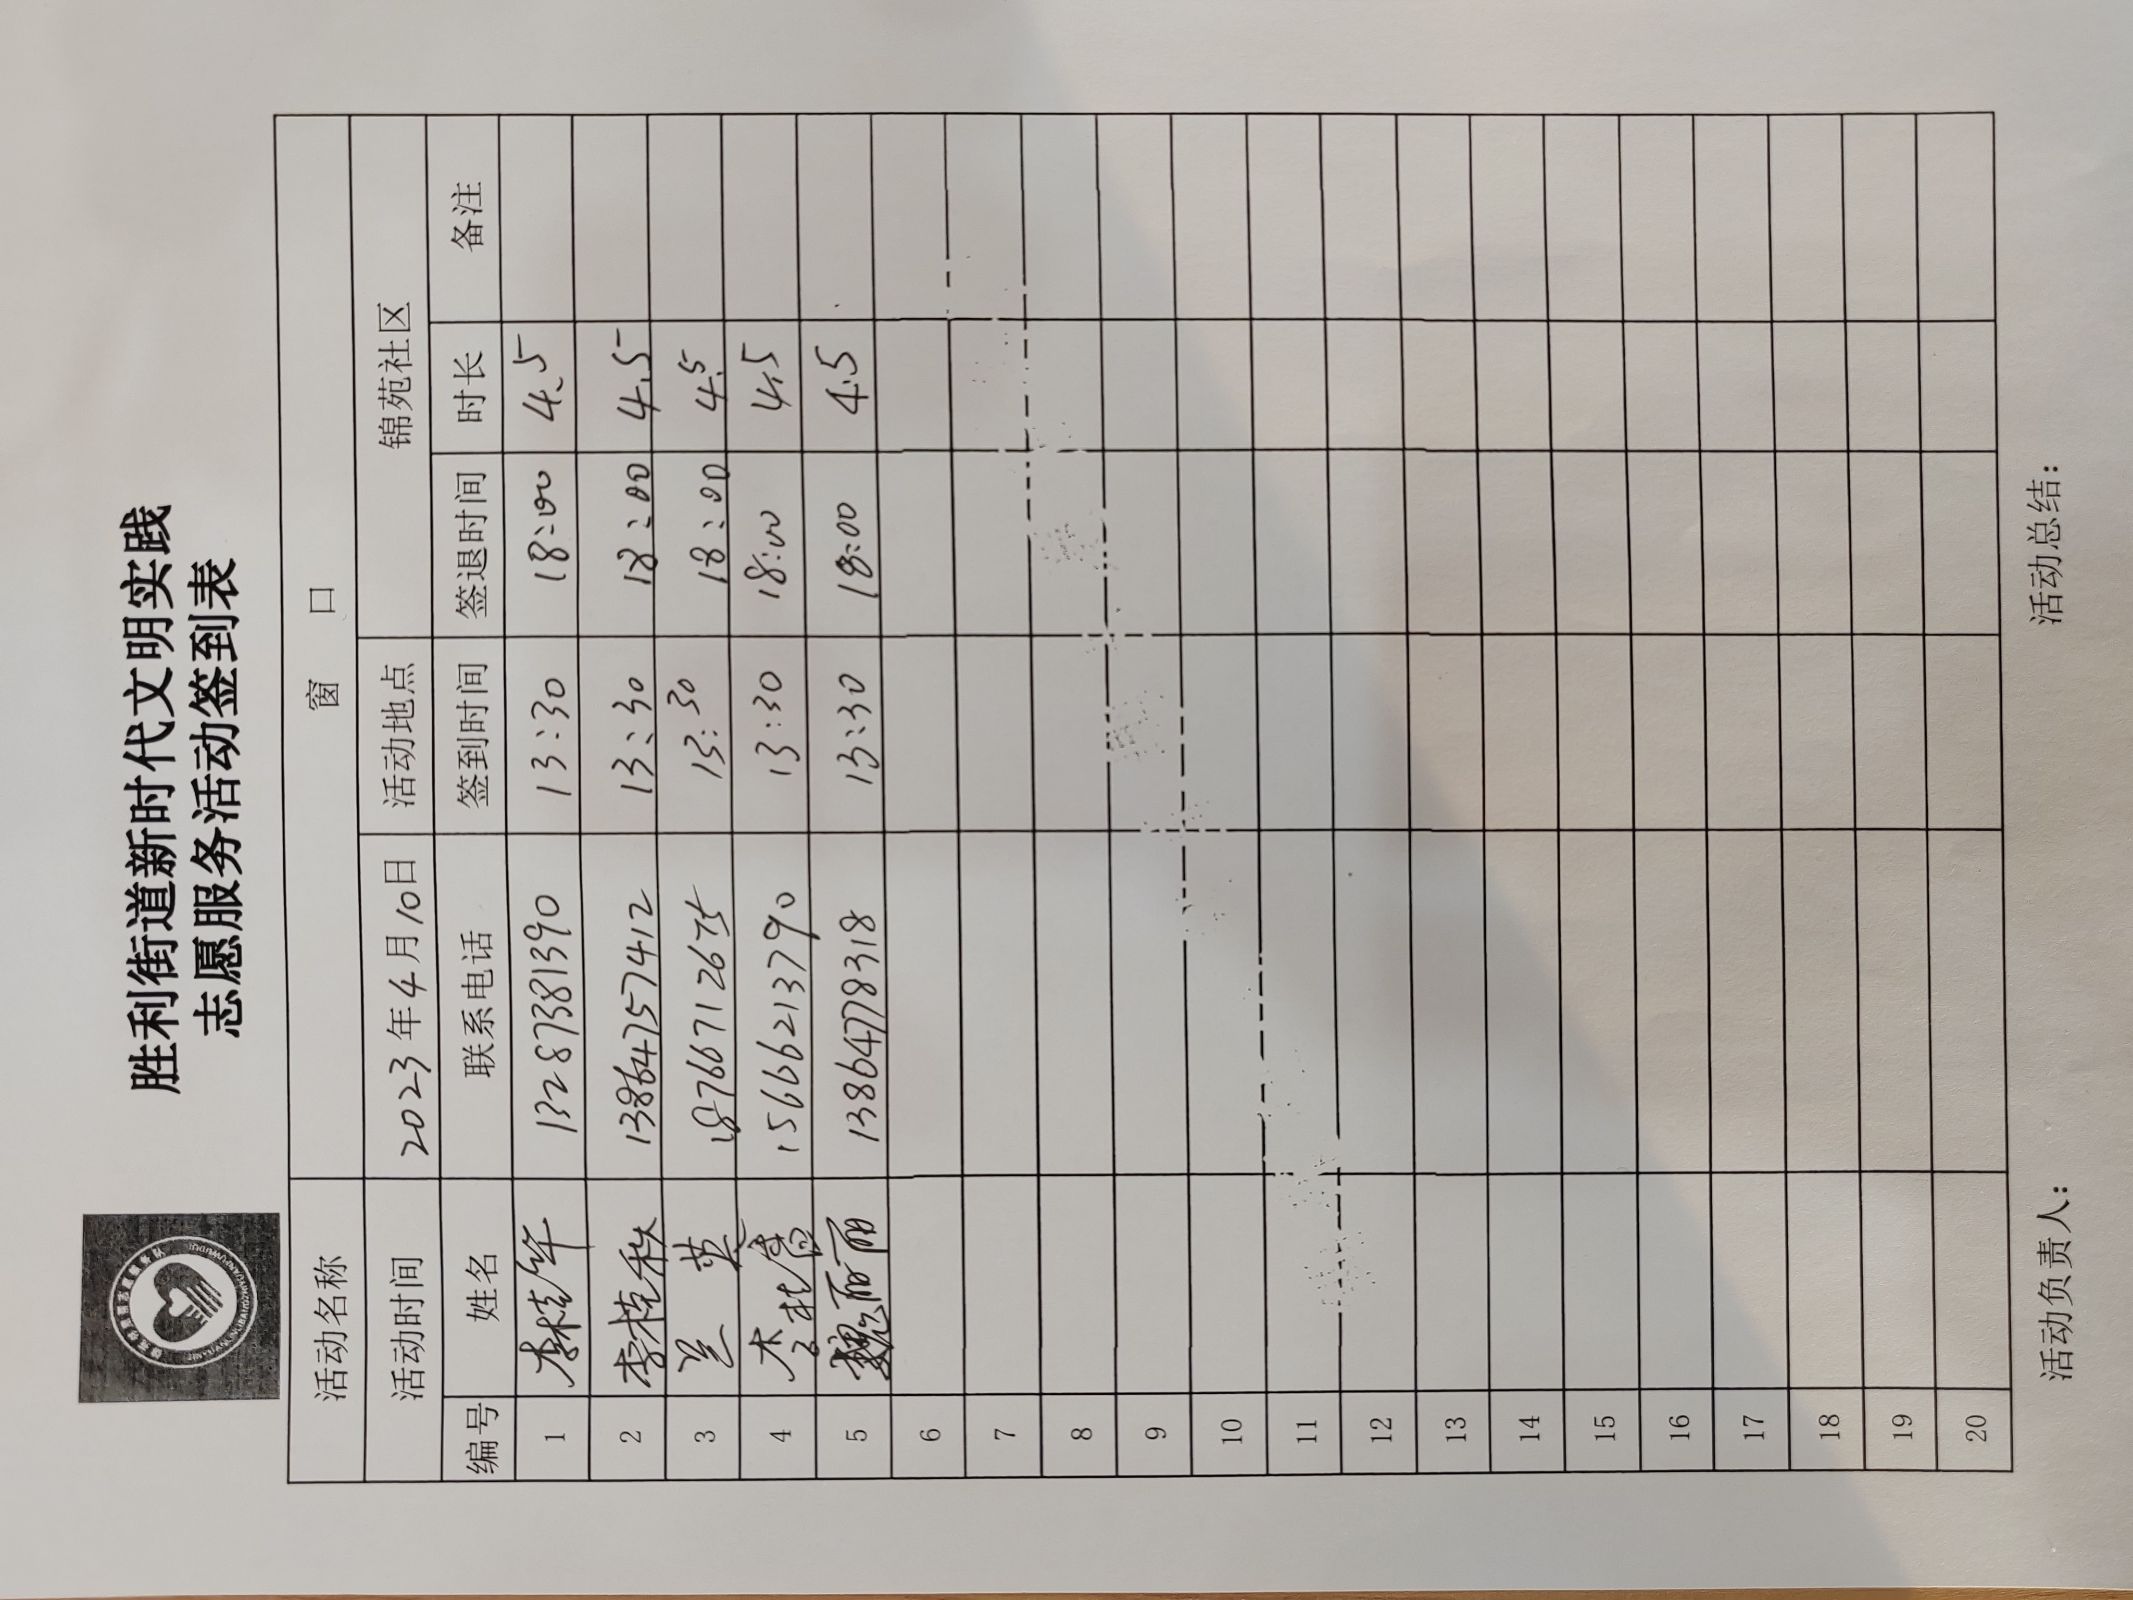 胜利街道新时代文明实践
志愿服务活动签到表
活动名称 窗 口
活动时间 2023年4月10日 活动地点 锦苑社区
编号 姓名 联系电话 签到时间 签退时间 时长 备注
1 李桂华 13287381390 13:30 18:00 4.5
2 李桂秋 13864757412 13:30 18:00 4.5
3 兰英 18766712675 13:30 18:00 4.5
4 15666213790 13:30 18:00 4.5
5 魏丽丽 13864778318 13:30 18:00 4.5
6
7
8
9
10
11
12
13
14
15
16
17
18
19
20
活动负责人： 活动总结：